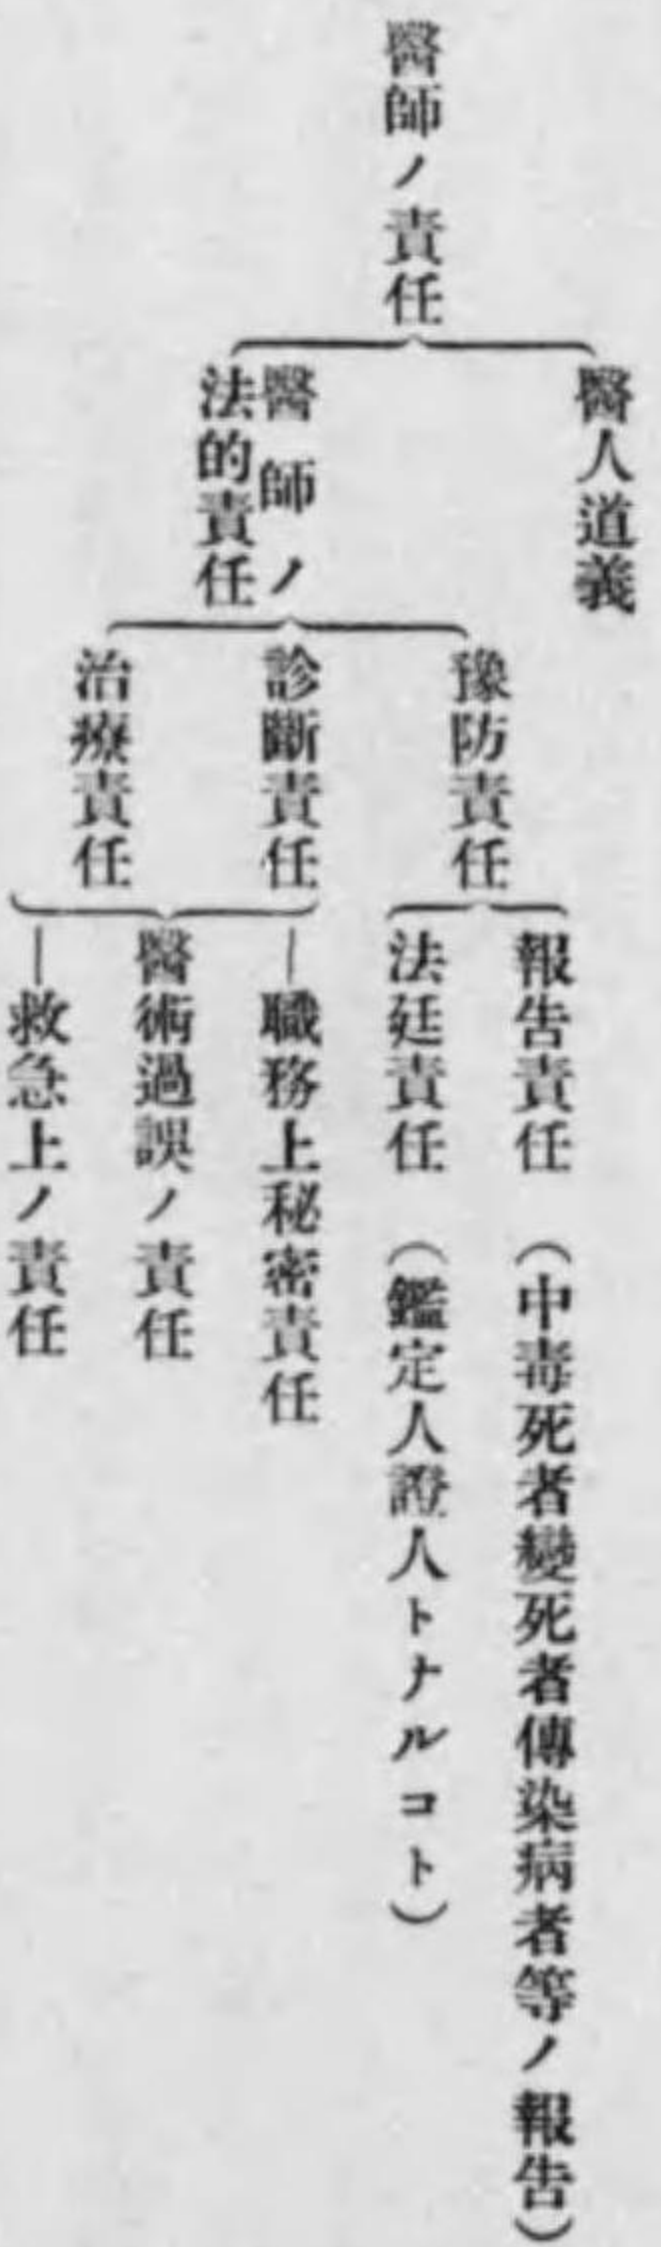 醫師ノ責任
醫人道義
醫師ノ
法的責任
豫防責任
診斷責任
治療責任
報告責任 (中毒死者變死者傳染病者等ノ報告)
法廷責任 (鑑定人證人トナルコト)
職務上秘密責任
醫術過誤ノ責任
救急上ノ責任